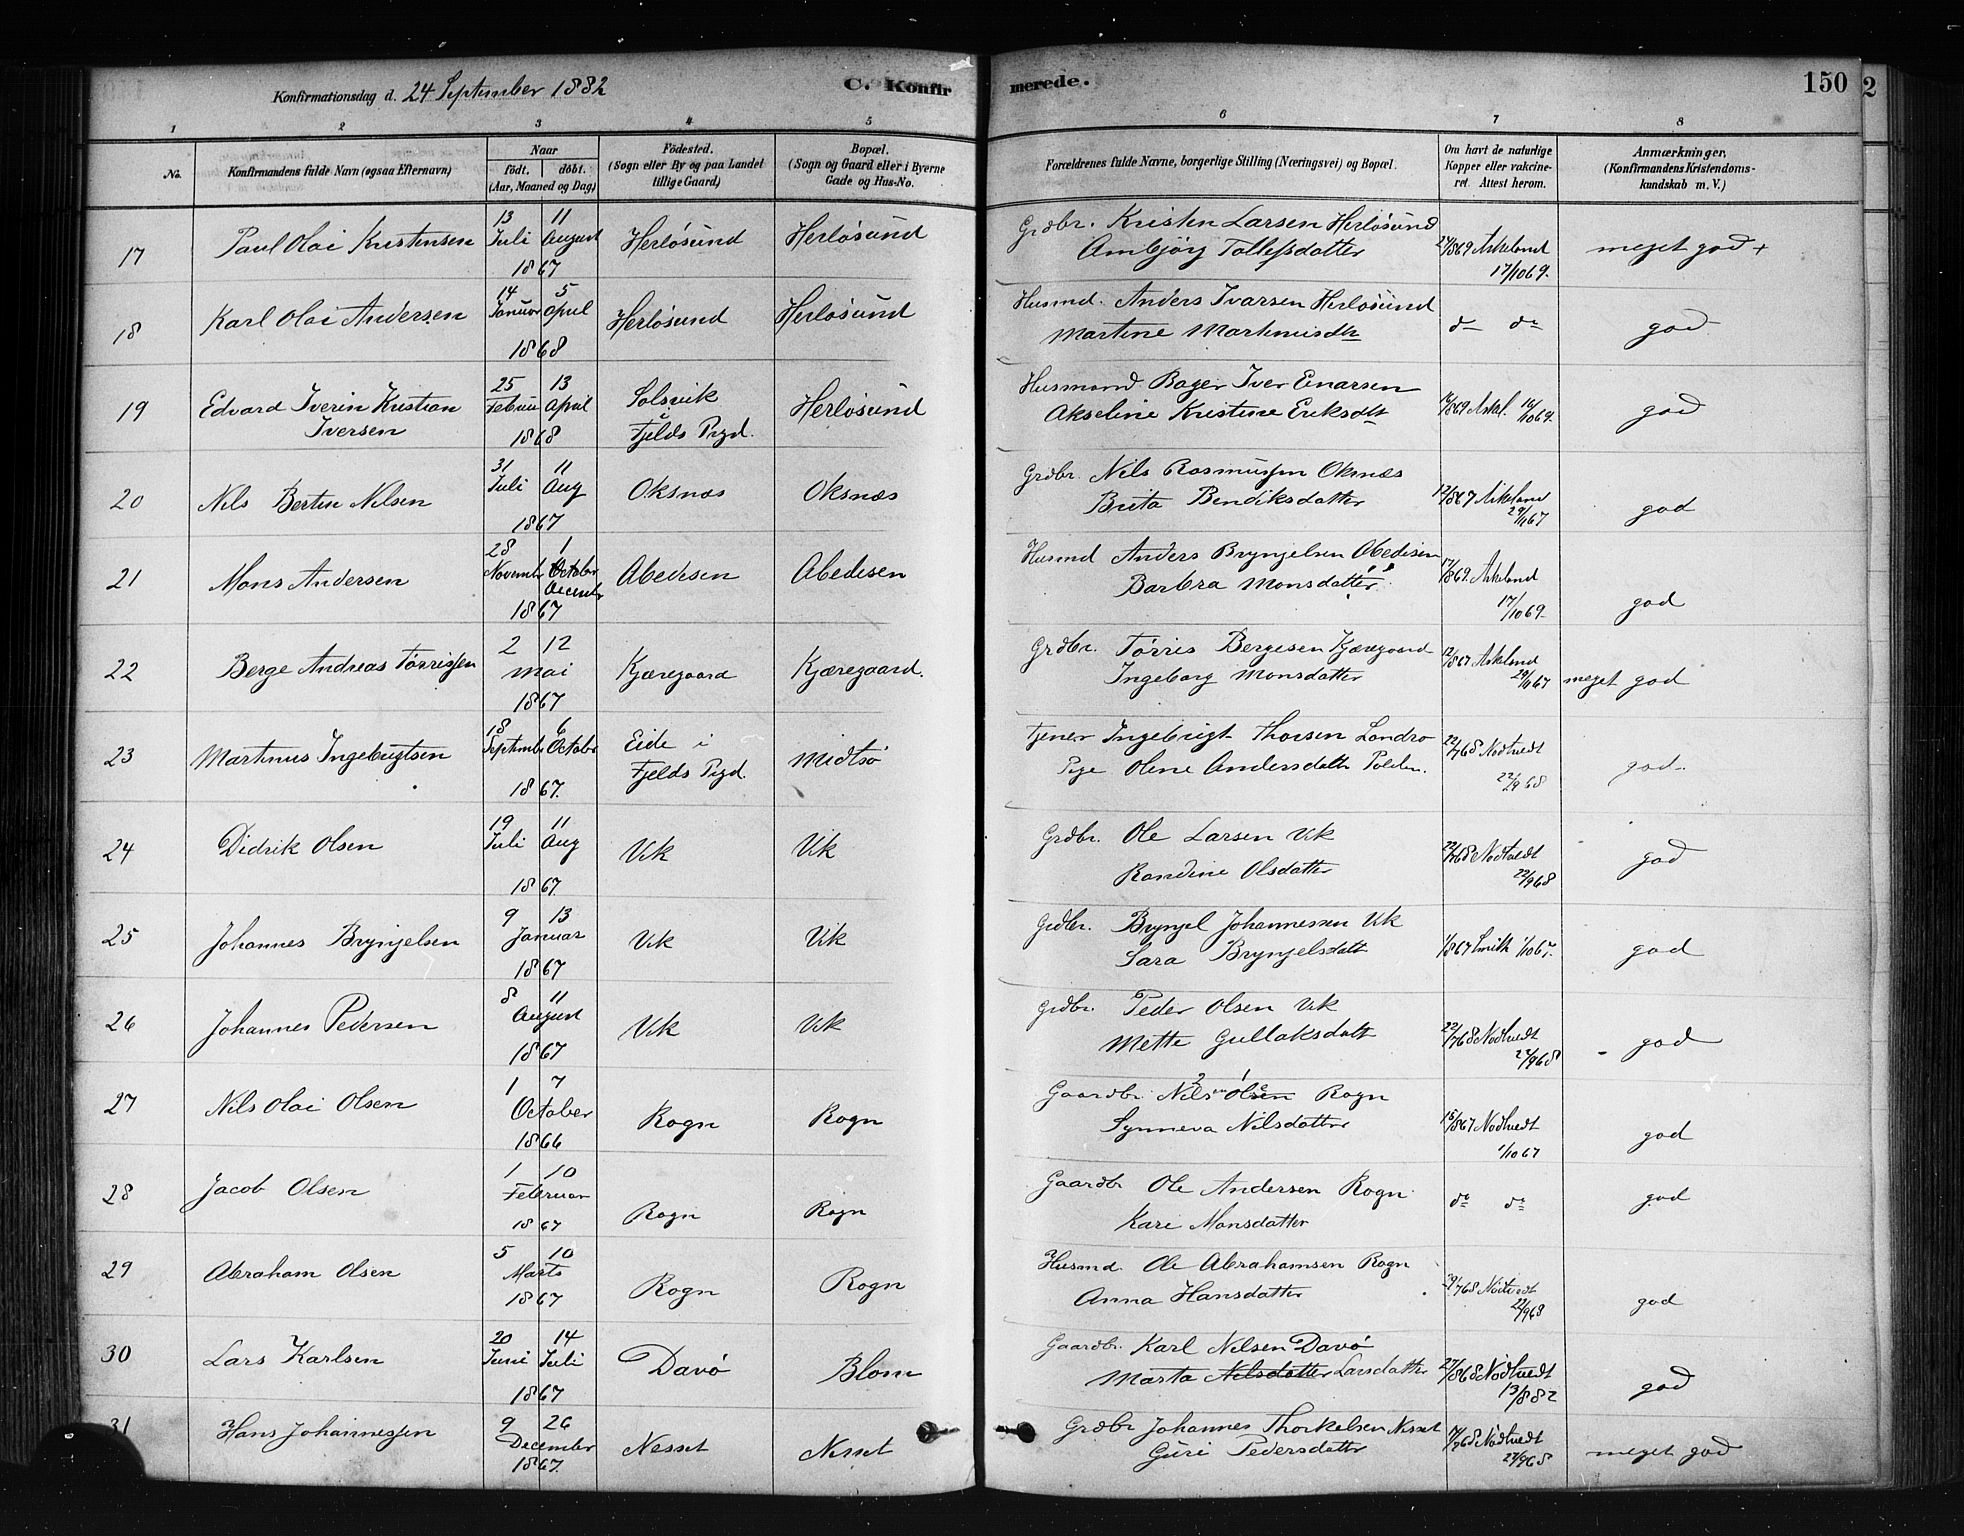 Konfirmationsdag d. 24 September 1882 C. Konfirmerede. 150
2
1 2 3 4 5 6 7 8
No. Konfirmandens fulde Navn (ogsaa Efternavn) Naar født. døbt. (Aar, Maaned og Dag) Fødested. (Sogn eller By og paa Landet tillige Gaard) Bopæl. (Sogn og Gaard eller i Byerne Gade og Hus-No. Forældrenes fulde Navne, borgerlige Stilling (Næringsvei) og Bopæl. Om havt de naturlige Kopper eller vakcineret. Attest herom. Anmærkninger, (Konfirmandens Kristendomskundskab m. V.)
17 Paul Olai Kristensen 13 Juli 11 August 1867 Herløsund Herløsund Grdbr. Kristen Larsen Herløsund
Ambjörg Tollefsdatter 869 Askeland 17/10 69. meget god +
18 Karl Olai Andersen 14 Januar 5 April 1868 Herløsund Herløsund Husmd. Anders Ivarsen Herløsund
Martine Martinusdtr do do god
19 Edvard Iverin Kristian Iversen 25 Februar 13 April 1868 Solsvik Fjelds Prgd. Herløsund Husmand Bager Iver Einarsen
Akseline Kristine Eriksdtr 869 Askel. 16/10 69. god
20 Nils Bertin Nilsen 31 Juli 11 Aug 1867 Oksnæs Oksnæs Grdbr. Nils Rasmussen Oksnæs
Brita Bendiksdatter 12/867 Askeland 29/11 67 god
21 Mons Andersen 28 November 1 October December 1867 Abedisen Abedisen Husmd Anders Brynjelsen Abedisen
Barbra Monsdatter 17/869. Askeland 17/10 69. god
22 Berge Andreas Tørrissen 2 12 Mai 1867 Kjæregaard Kjæregaard. Grdbr. Tørris Bergesen Kjæregaard
Ingeborg Monsdatter 12/867 Askeland 29/11 67 meget god
23 Martinus Ingebrigtsen 18 September 6 October 1867. Eide i Fjelds Prgd. Midtsø Tjener Ingebrigt Thorsen Landro
Pige Oline Andersdatter 22/768 Nødtvedt 22/9 68 god
24 Didrik Olsen 19 Juli 11 Aug 1867. Vik Vik Grdbr. Ole Larsen Vik
Randine Olsdatter 22/768 Nødtvedt 22/9 68 god
25 Johannes Brynjelsen 9 13 Januar 1867 Vik Vik Grdbr. Brynjel Johannessen Vik
Sara Brynjelsdatt 1/867 Smith 1/10 67. god
26 Johannes Pedersen 8 11 August 1867 Vik Vik Grdbr. Peder Olsen Vik
Mette Gullaksdatt 22/768 Nødtvedt 22/968 god
27 Nils Olai Olsen 1 7 October 1866 Rogn Rogn Gaardbr. Nils Olsen Rogn
Synneva Nilsdatter 15/867 Nødtvedt 1/10 67 god
28 Jacob Olsen 1 10 Februar 1867 Rogn Rogn Gaardbr Ole Andersen Rogn
Kari Monsdatter do do god
29 Abraham Olsen 5 10 Marts 1867 Rogn Rogn Husmd. Ole Abrahamsen Rogn
Anna Hansdatter 768 Nødtvedt 22/968 god
30 Lars Karlsen 20 Juni 14 Juli 1867 Davø Blom Gaardbr. Karl Nilsen Davø
Marta Nilsdatter Larsdatter 27/868 Nødtvedt 13/882 god
31 Hans Johannessen 9 26 December 1867. Nesset Nesset Grdbr Johannes Thorkelsen Nesset
Guri Pedersdatter 768 Nødtvedt 22/968 meget god